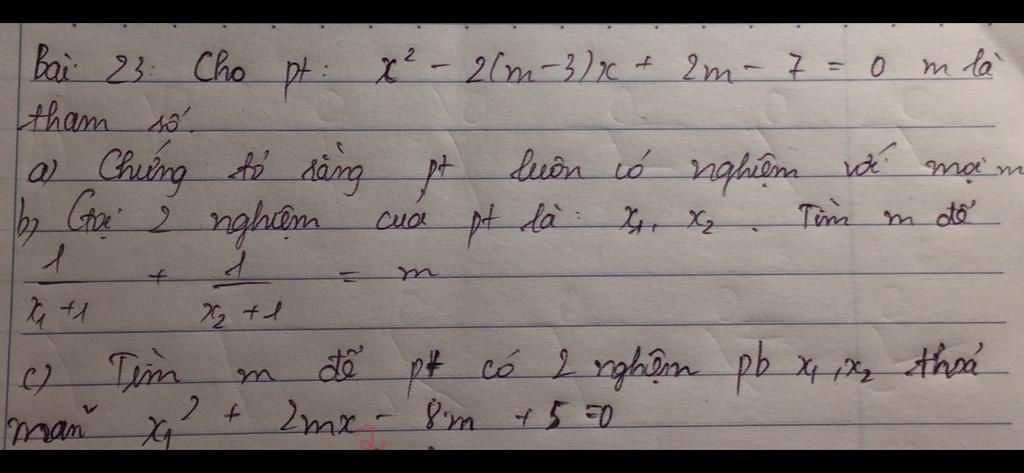 Bài 23: Cho pt: x² - 2(m-3)x + 2m - 7 = 0 m là
tham số.
a) Chứng tỏ rằng pt luôn có nghiệm với mọi m
b) Gọi 2 nghiệm của pt là: x₁, x₂. Tìm m để
1/(x₁+1) + 1/(x₂+1) = m
c) Tìm m để pt có 2 nghiệm pb x₁, x₂ thoả
mãn x₁² + 2mx₂ - 8m + 5 = 0